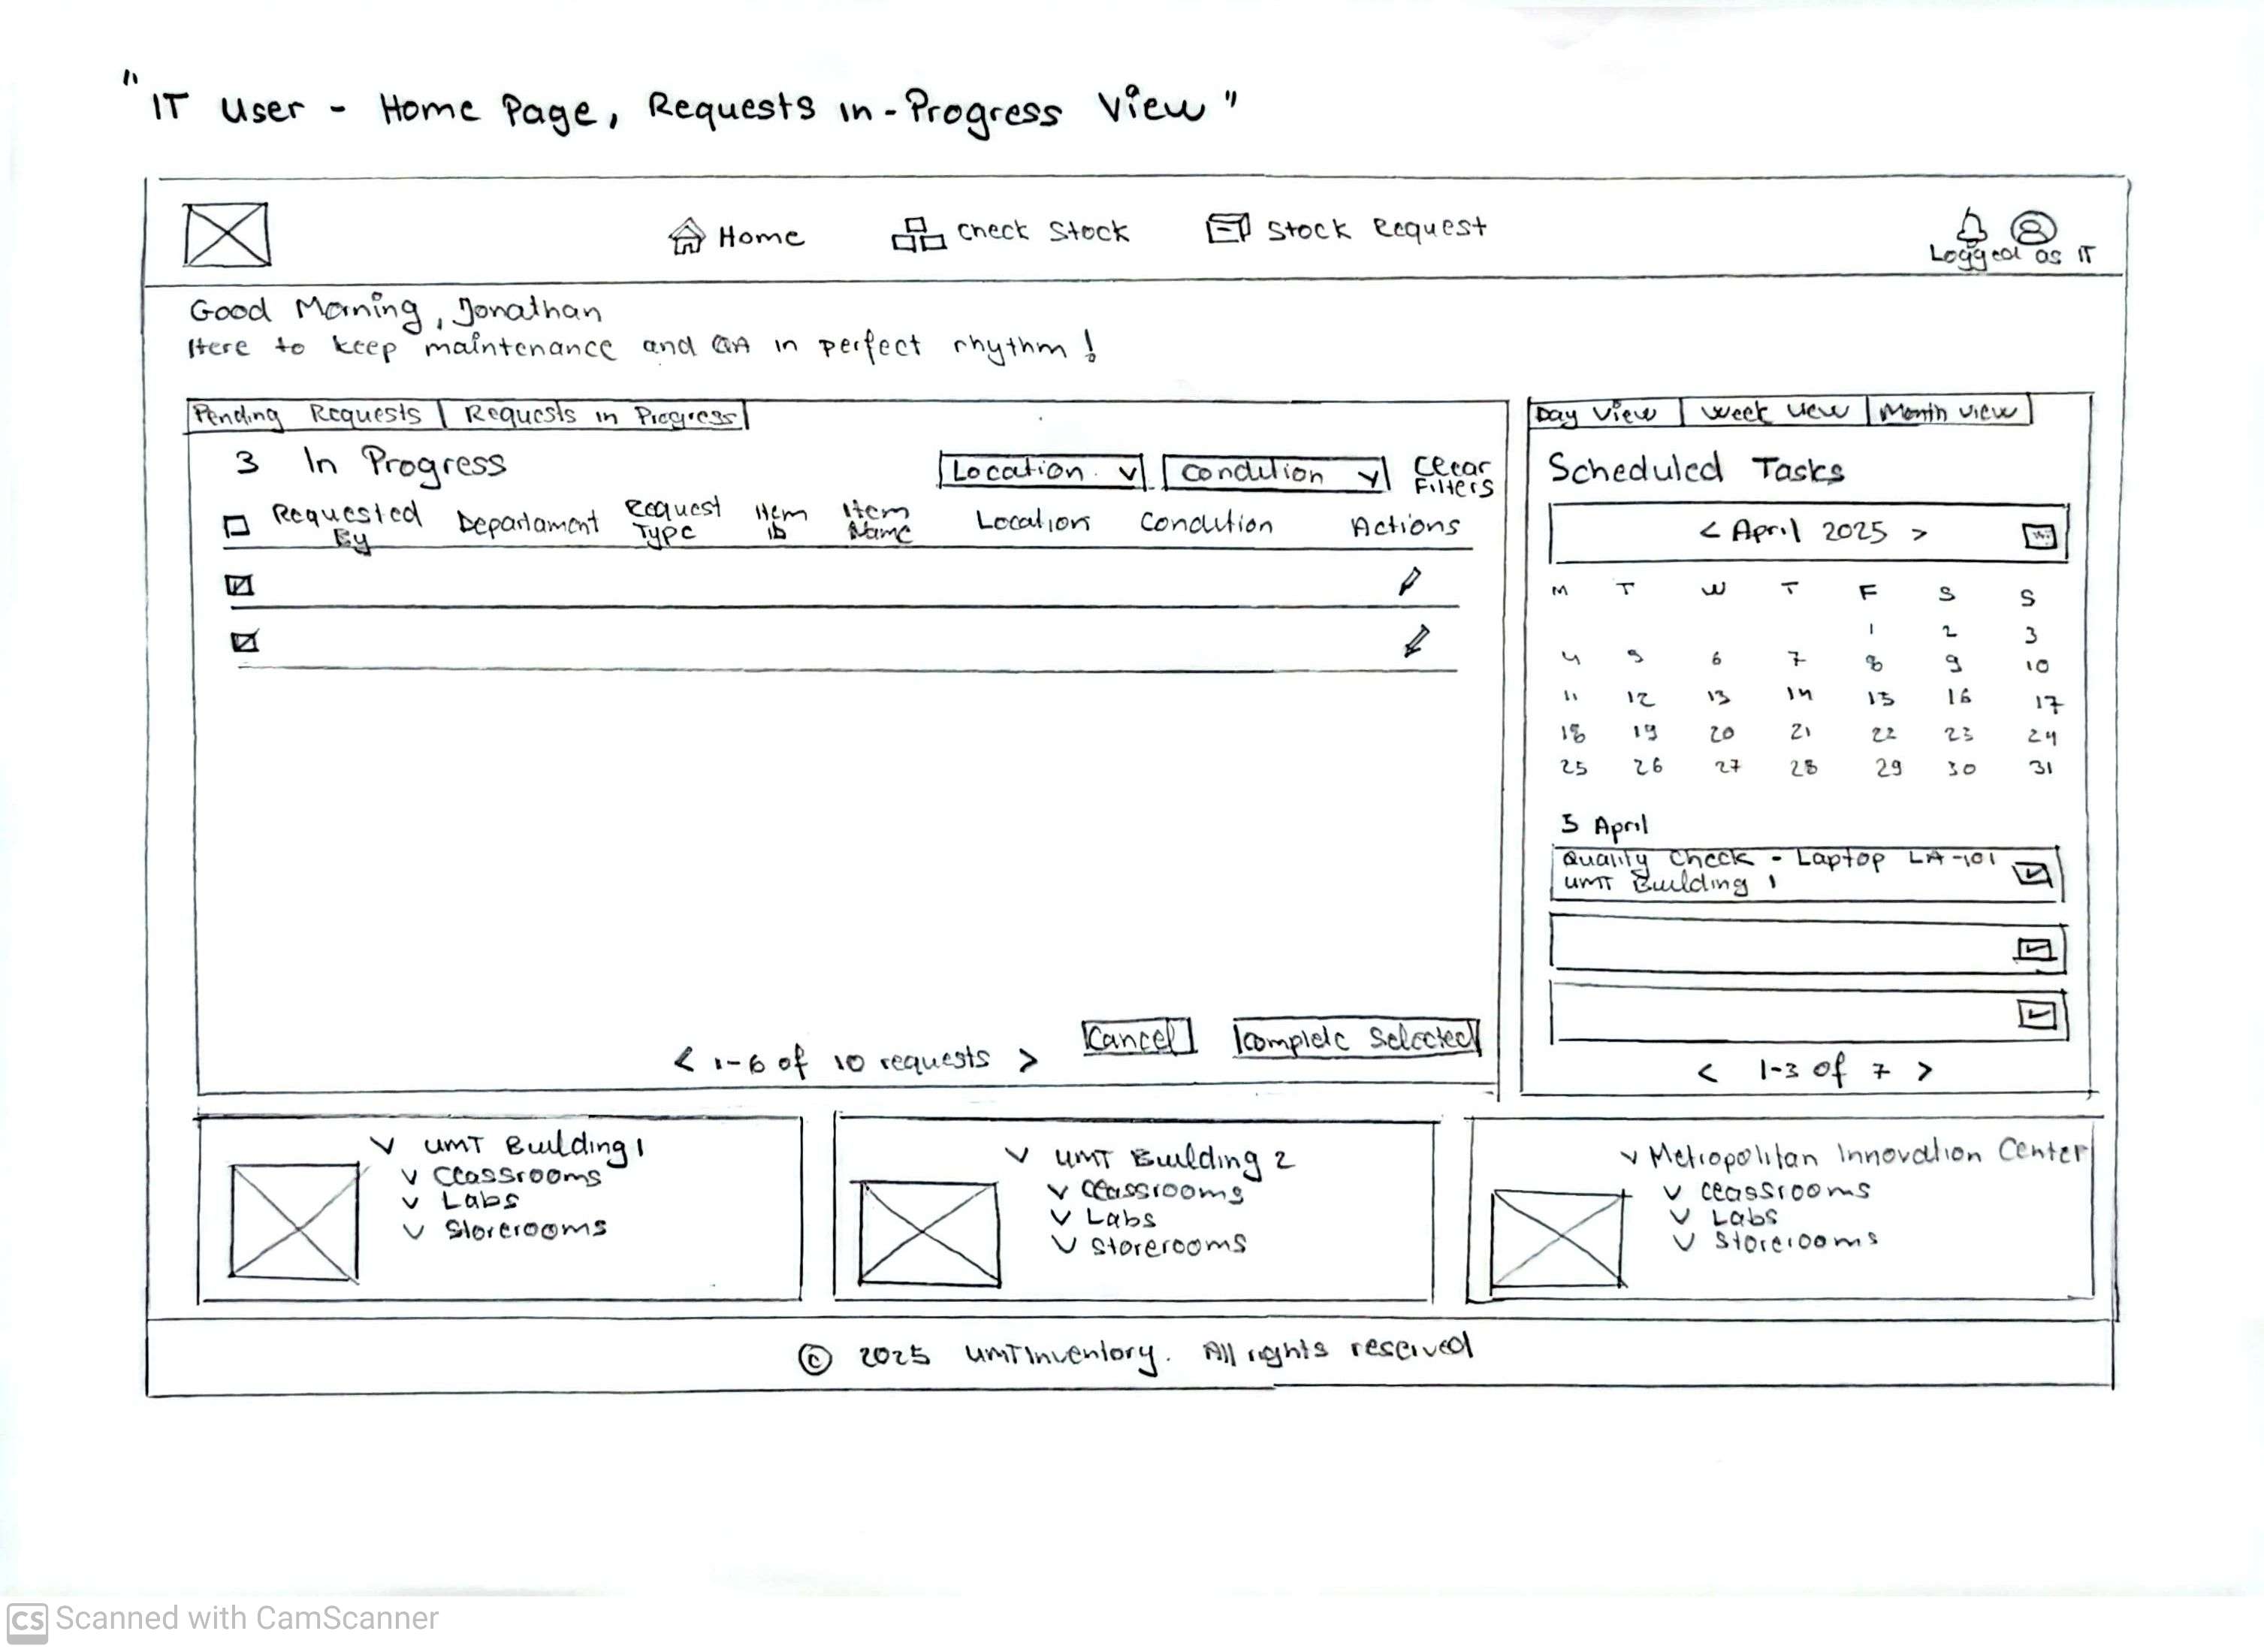 "IT User - Home Page, Requests in-Progress View"
Home
Check Stock
Stock Request
Logged as IT
Good Morning, Jonathan
Here to keep maintenance and QA in perfect rhythm!
Pending Requests
Requests in Progress
3 In Progress
Location
Condition
Clear
Filters
Requested
By
Departament
Request
Type
Item
ID
Item
Name
Location
Condition
Actions
< 1-6 of 10 requests >
Cancel
Complete Selected
Day View
Week View
Month View
Scheduled Tasks
< April 2025 >
M T W T F S S
1 2 3
4 5 6 7 8 9 10
11 12 13 14 15 16 17
18 19 20 21 22 23 24
25 26 27 28 29 30 31
5 April
Quality Check - Laptop LA-101
UMT Building 1
< 1-3 of 7 >
UMT Building 1
Classrooms
Labs
Storerooms
UMT Building 2
Classrooms
Labs
Storerooms
Metropolitan Innovation Center
Classrooms
Labs
Storerooms
© 2025 UMTInventory. All rights reserved
CS Scanned with CamScanner